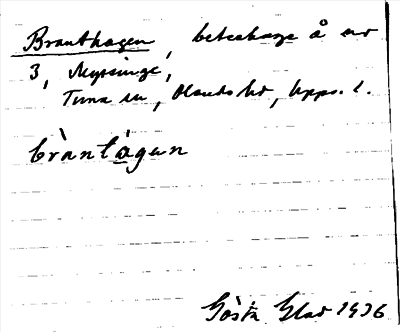 Branthagen, beteshage å nr
3, Mysinge,
Tuna sn, Olands hd, Upps. l.
bràntàgun
Gösta Glad 1936